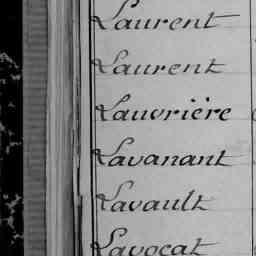 Laurent
Laurent
Lauvrière
Lavanant
Lavault
Lavocat